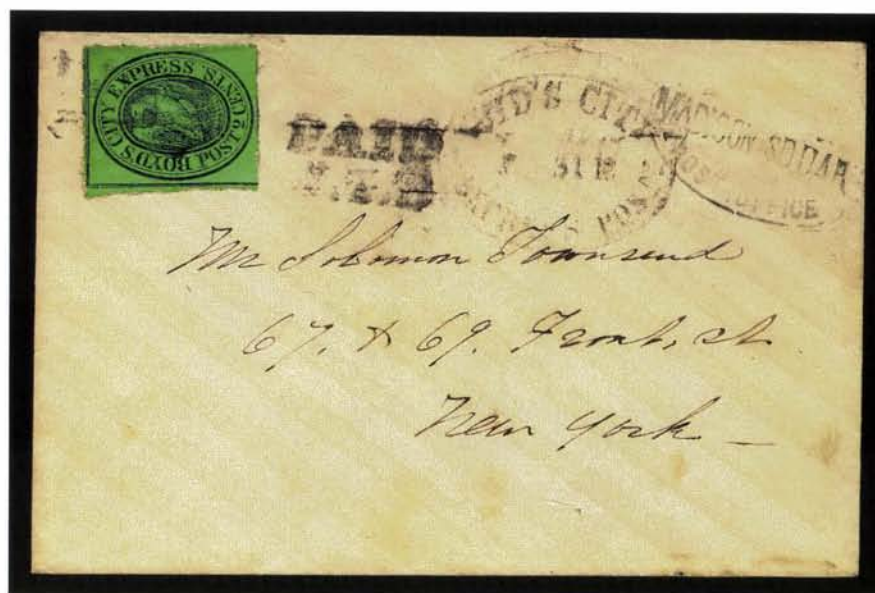 BOYD'S CITY EXPRESS POST 2 CENTS.
PAID
J.T.B.
BOYD'S CITY EXPRESS POST
MADISON SQUARE POST OFFICE
Mr Solomon Townsend
67. & 69. Front, st.
New York –